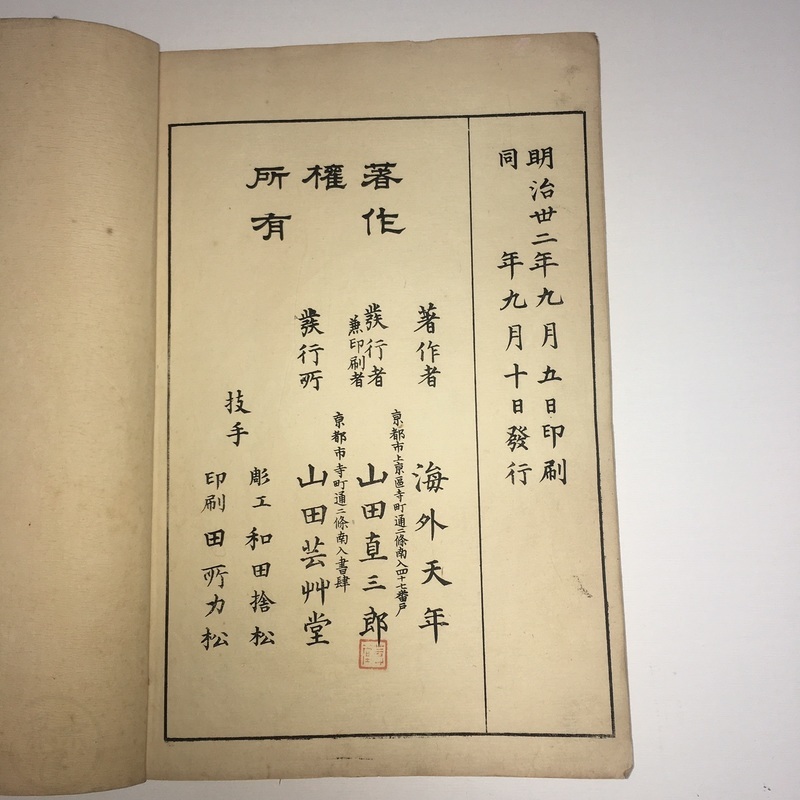 明治丗二年九月五日印刷
同年九月十日發行
著作
權
所有
著作者
海外天年
發行者
兼印刷者
京都市上京區寺町通二條南入四十七番戸
山田直三郎
發行所
京都市寺町通二條南入書肆
山田芸艸堂
技手
彫工 和田捨松
印刷 田所力松